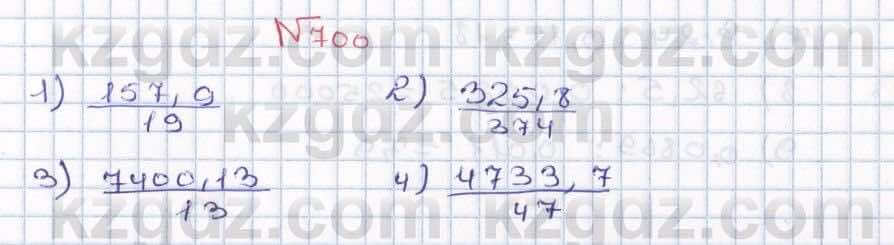 №700
1) 157,9/19 2) 325,8/374
3) 7400,13/13 4) 4733,7/47
kzgdz.com kzgdz.com
kzgdz.com
kzgdz.com kzgdz.com